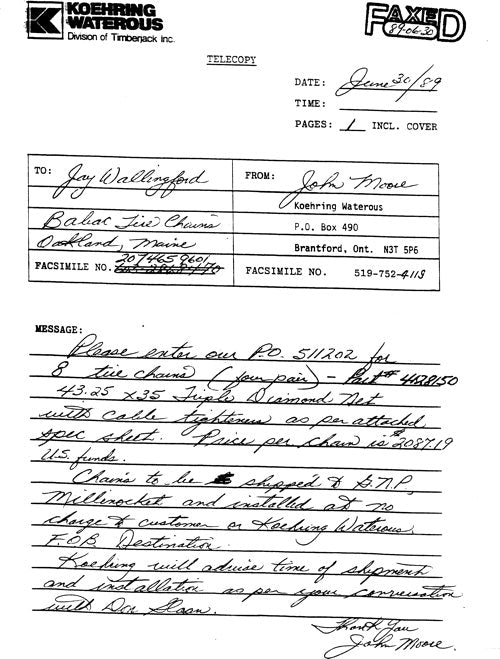 KOEHRING
WATEROUS
Division of Timberjack Inc.
FAXED
89-06-30
TELECOPY
DATE: June 30/89
TIME:
PAGES: 1 INCL. COVER
TO: Jay Wallingford
Babac Tire Chains
Oakland, Maine
207 465 9601
FACSIMILE NO.
FROM: John Moore
Koehring Waterous
P.O. Box 490
Brantford, Ont. N3T 5P6
FACSIMILE NO. 519-752-4118
MESSAGE:
Please enter our P.O. 511202 for
8 tire chains (four pair) - Part # 4628150
43.25 x 35 Triple Diamond Net
with cable tighteners as per attached
spec sheet. Price per chain is $2087.19
U.S. funds.
Chains to be shipped to G.N.P.
Millinocket and installed at no
charge to customer or Koehring Waterous,
F.O.B. Destination.
Koehring will advise time of shipment
and installation as per your conversation
with Don Sloan.
Thank You
John Moore.